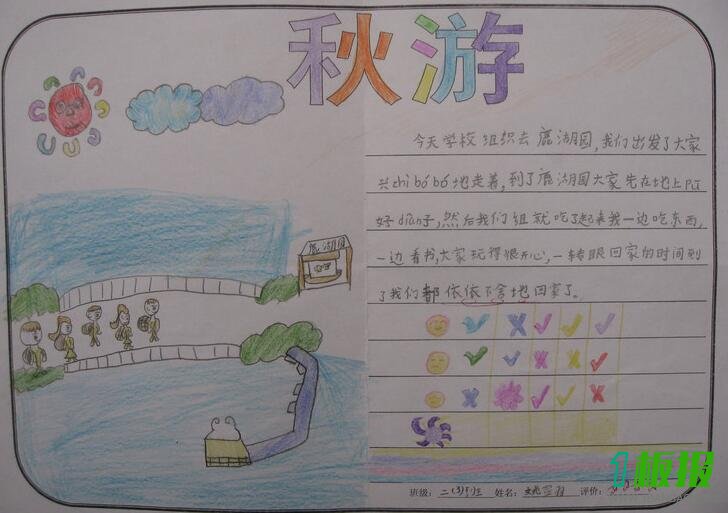 秋游
今天学校组织去鹿湖园,我们出发了大家
兴zhì bó bó地走着,到了鹿湖园大家先在地上pū
好diàn子,然后我们组就吃了起来我一边吃东西,
一边看书,大家玩得很开心,一转眼回家的时间到
了我们都依依不舍地回家了。
鹿湖园
班级:二(3)班 姓名: 评价:
板报